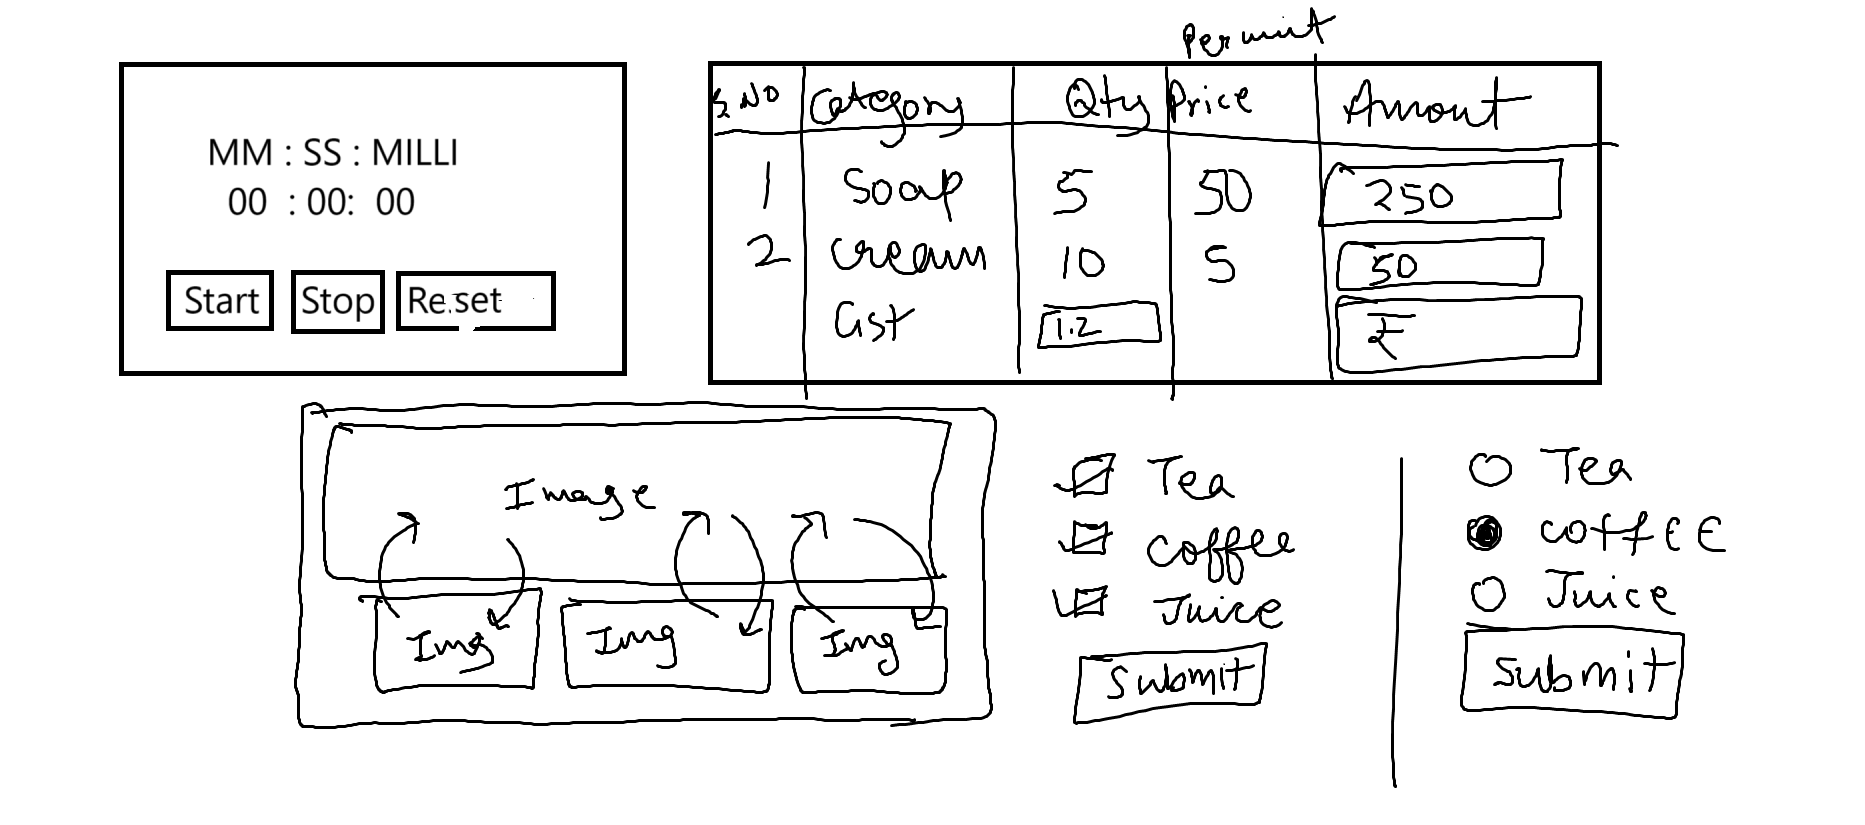 MM : SS : MILLI
00 : 00: 00
Start Stop Reset
Per unit
S.NO Category Qty Price Amout
1 Soap 5 50 250
2 cream 10 5 50
Gst 1.2 ₹
Image
Img Img Img
Tea
coffee
Juice
Submit
Tea
coffEE
Juice
Submit